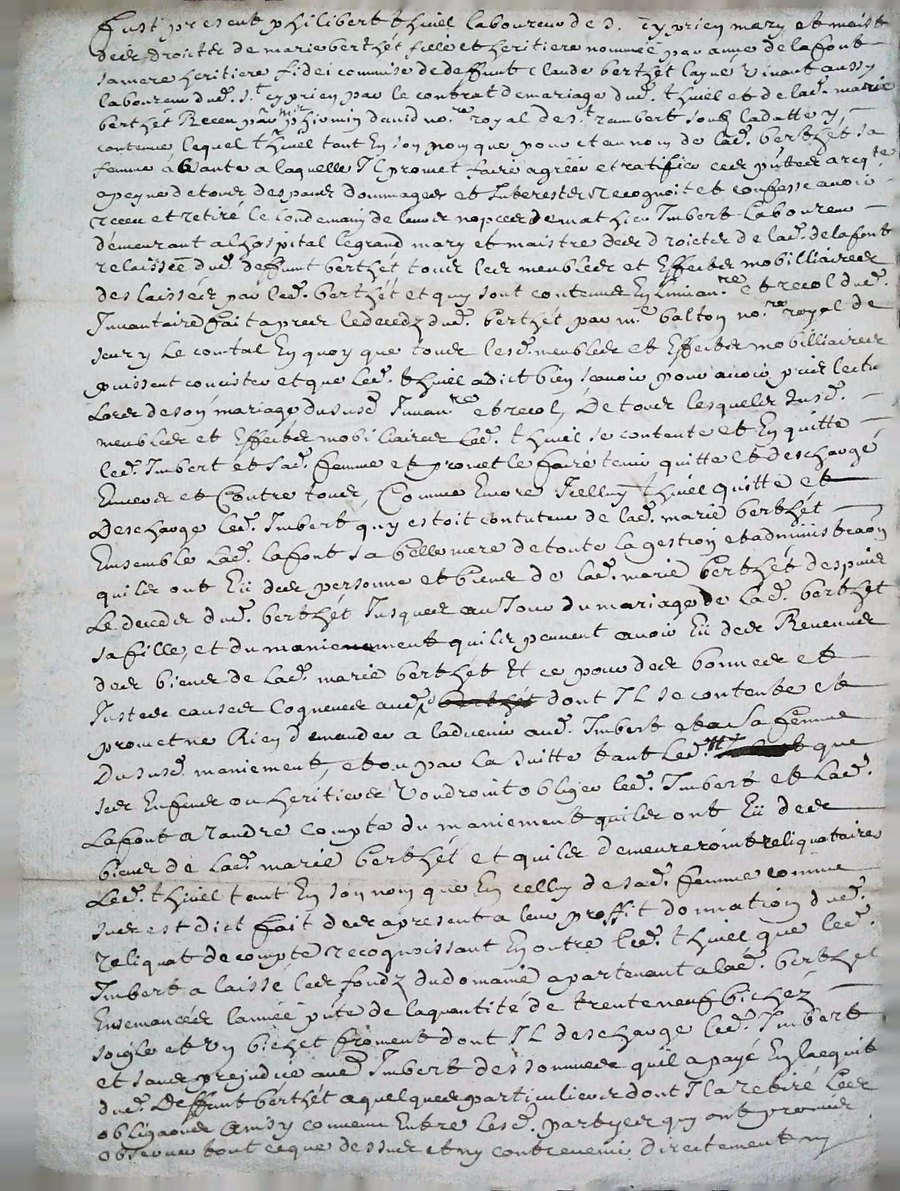 Fust present philibert thiuel laboureur de S. cyprien mary et maist
des droictz de marie berthet fille et heritiere nommée par anne de lafont
sa mere heritiere fidei commise de deffunt claude berthet layné viuant aussy
laboureur dud. St cyprien par le contrat de mariage dud. thiuel et de lad. marie
berthet Receu par me phirmin dauid nore royal de St rambert soubz la datte y
contenue lequel thiuel tant en son nom que pour et au nom de lad. berthet sa
femme a laquelle Il promet faire agréer et ratiffier ces ptes a reqte
a peyne de tous despans dommages et Interestz recognoit et confesse auoir
receu et retiré le lendemain de leurs nopces de mathieu Imbert Laboureur
demeurant a lhospital legrand mary et maistre des droictz de lad. delafont
relaissée dud. deffunt berthet tous les meubles et Effectz mobilliaires
deslaissés par led. berthet et quy sont contenus En linuanre et recol dud.
Inuantaire fait apres le decedz dud. berthet par me balton nore royal de
seury le comtal En quoy que tous lesd. meubles et Effectz mobilliaires
puissent concister et que led. thiuel a dict bien scauoir pour auoir pris lectu
lors de son mariage dususd Inuanre et recol, De tous lesquelz susd.
meubles et Effectz mobilliaires led. thiuel se contente et En quitte
led. Imbert et sad. femme et promet le faire tenir quitte et deschargé
Enuers et Contre tous, Comme Encore Icelluy thiuel quitte et
Descharge led. Imbert quy estoit contuteur de lad. marie berthet
Ensemble Lad. lafont sa belle mere de toute la gestion et administraon
quilz ont Eü des personne et biens de lad. marie berthet despuis
Le decedz dud. berthet Jusques au Jour du mariage de Lad. berthet
sa fille, et du maniement quilz peuuent auoir Eü des Reuenus
des biens de Lad. marie berthet Et ce pour des bonnes et
Justes causes Cogneues aud. berthet dont IL se contente et
promet ne Rien demander a laduenir aud. Imbert et a sa femme
Du susd. maniement, et ou par la suitte tant Led. que
ses Enfans ou heritiers Voudroint obliger led. Imbert et Lad.
Lafont a randre compte du maniement quilz ont Eü des
biens de Lad. marie berthet et quilz demeureroint reliquataires
Led. thiuel tant En son nom que En celluy de sad. femme comme
sus est dict fait des apresent a leur proffit donnation dud.
reliquat de compte recognoissant En outre led. thiuel que led.
Imbert a laissé les fondz du domaine apartenant a lad. berthet
Ensemancés lannée pnte de la quantité de trente neuf bichez
soigle et un bichet froment dont IL descharge led. Imbert
et sans prejudice aud. Imbert des sommes quil a payé En lacquit
dud. Deffunt berthet a quelques particuliers dont Il a retiré les
obligaons Ainsy conuenu Entre lesd. partyes quy ont promis
obseruer tout ce que dessus et ny contreuenir directement ny